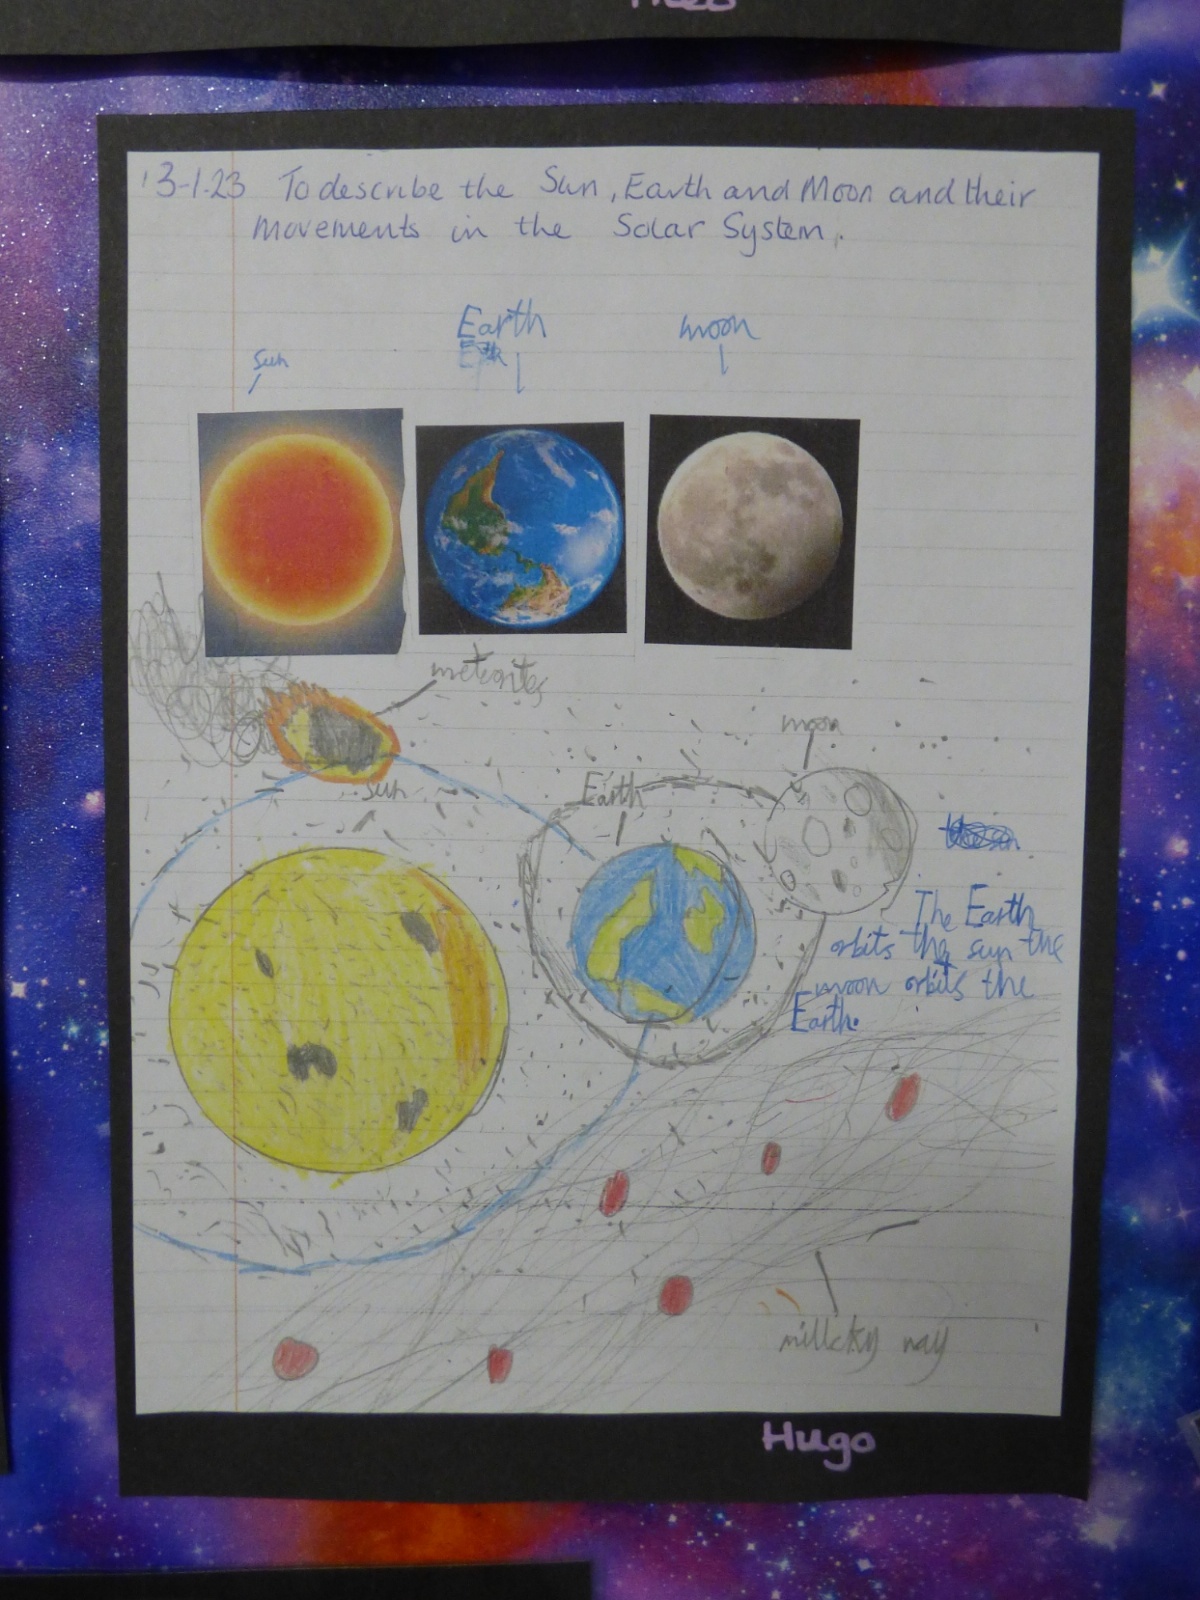 13-1-23 To describe the Sun, Earth and Moon and their
movements in the Solar System.
Sun
Earth
moon
meteorites
moon
Sun
Earth
The Earth
orbits the sun the
moon orbits the
Earth.
millcky way
Hugo